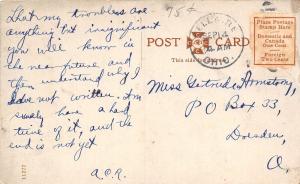 That my troubles are
anything but insignificant
you will know in
the near future and
then understand why I
have not written. Am
surely have a hard
time of it, and the
end is not yet
A.C.R.
75¢
POST CARD
SEP 14
AM
OHIO.
Place Postage
Stamp Here
Domestic and
Canada
One Cent.
Foreign
Two Cents
Miss Gertrude Armstrong,
P O Box 33,
Dresden,
O.
11277